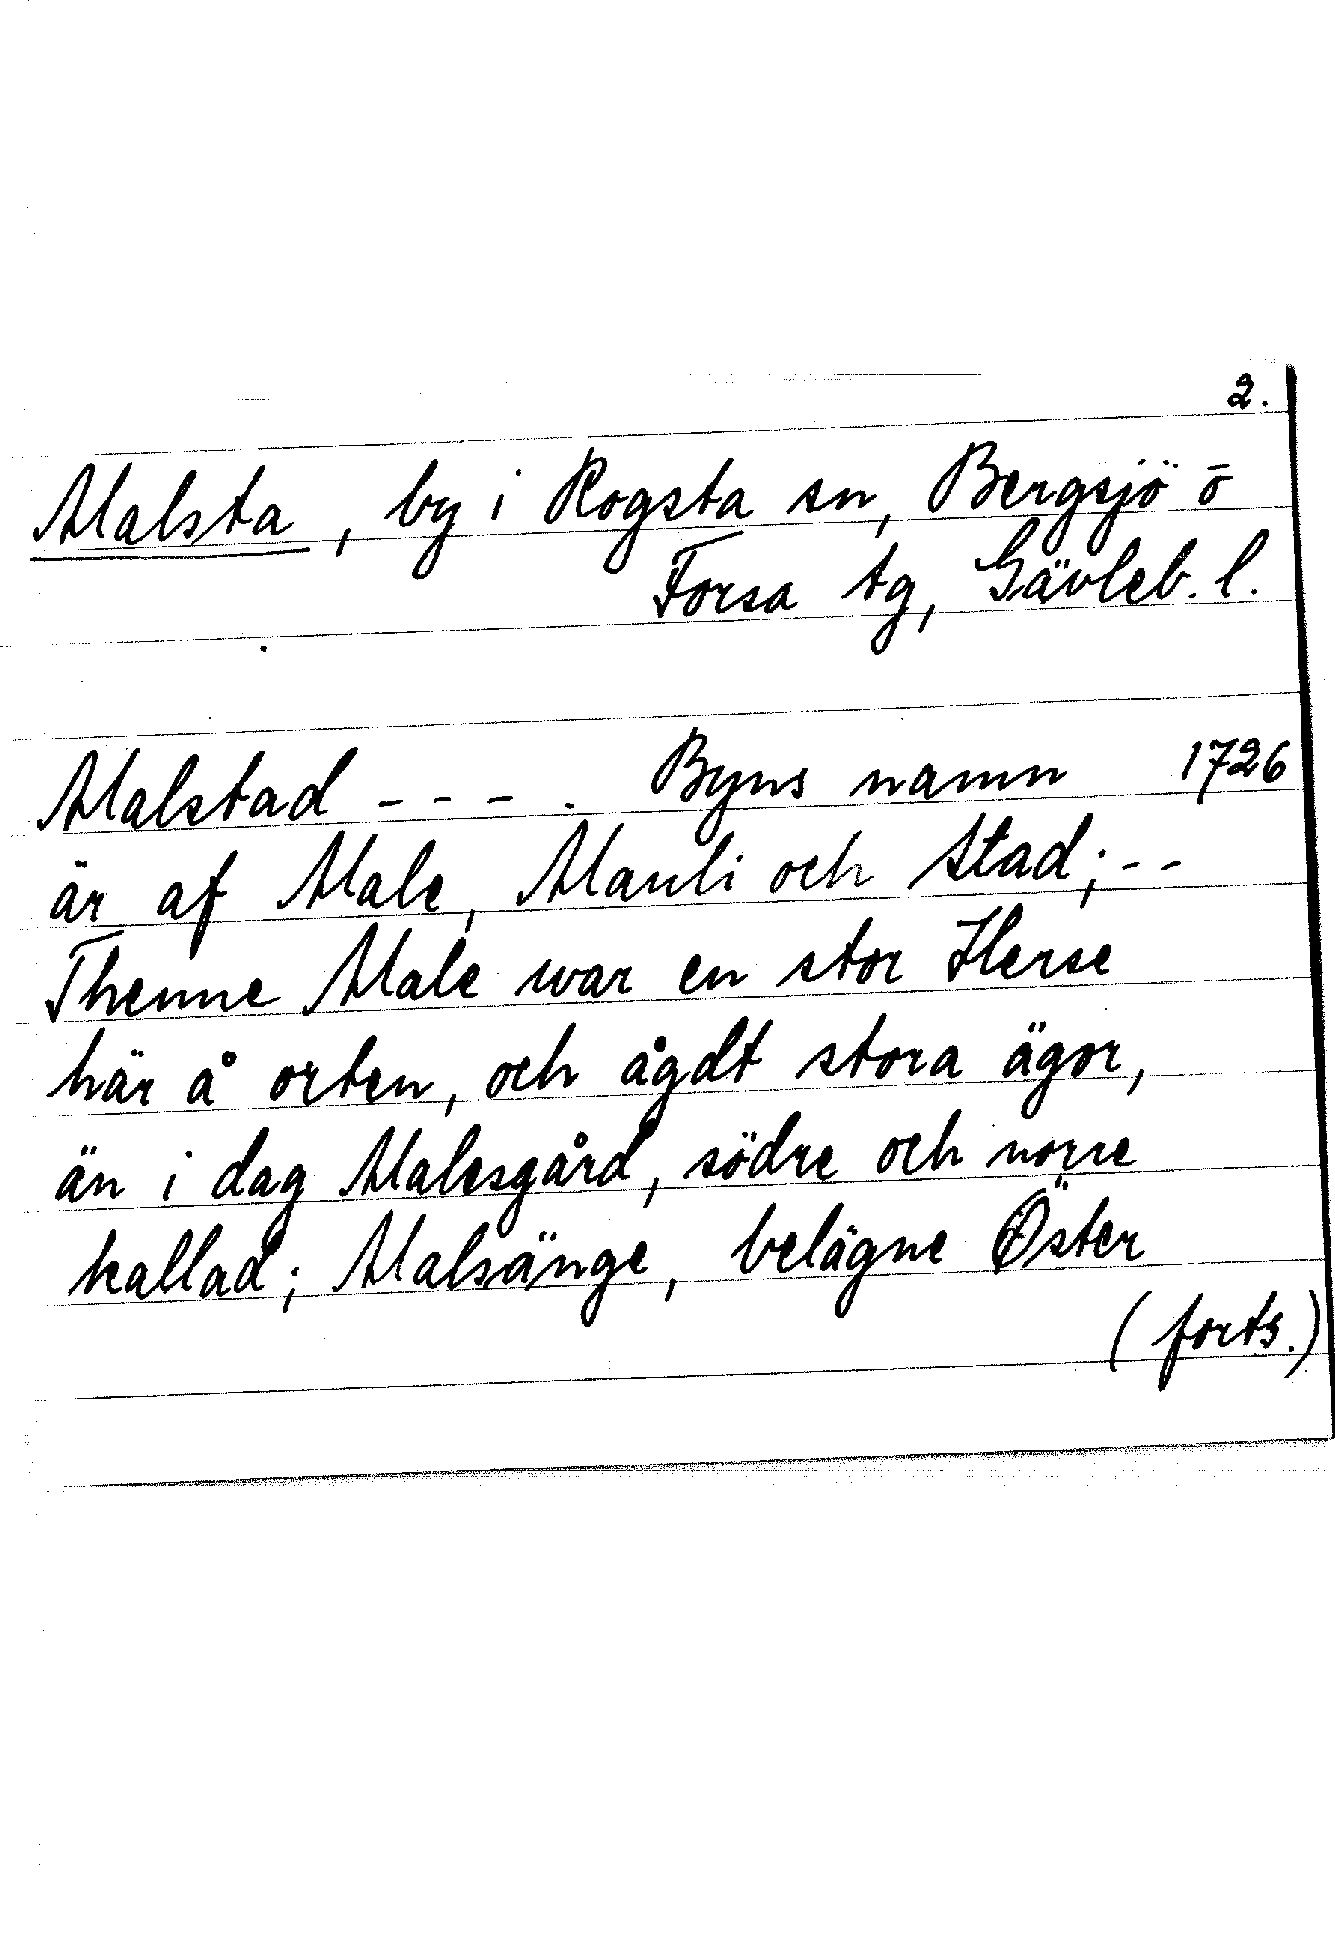 2.
Malsta, by i Rogsta sn, Bergsjö o
Forsa tg, Gävleb. l.
Malstad - - - . Byns namn 1726
är af Male, Mauli och Stad; - -
Thenne Male war en stor Herse
här å orten, och ågdt stora ägor,
än i dag Malesgård, södre och norre
kallad; Malsänge, belägne Öster
(forts.)